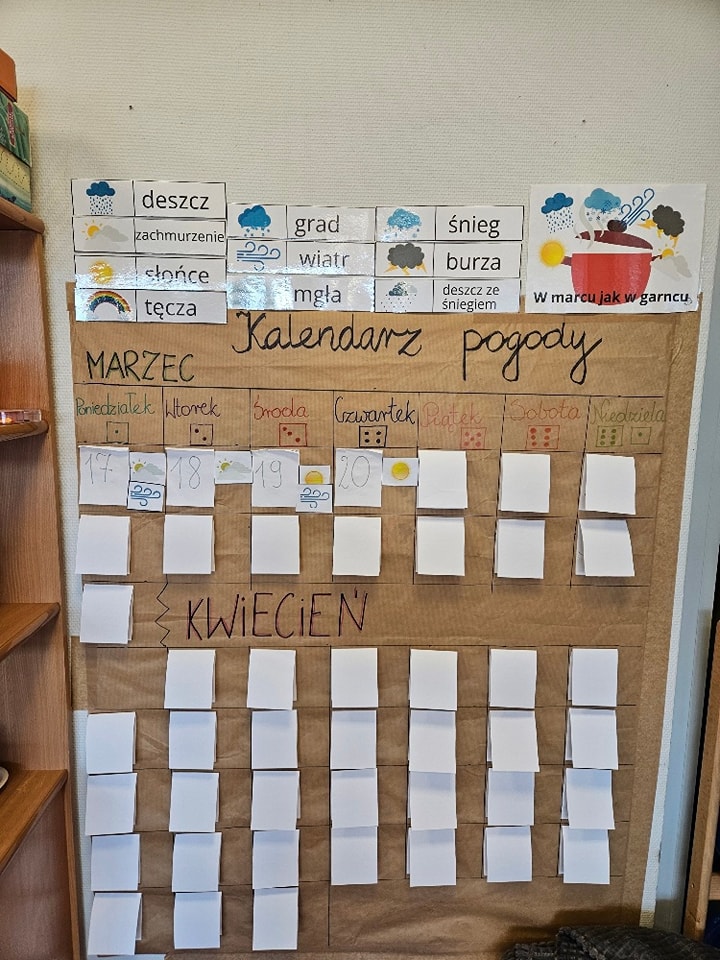 deszcz
zachmurzenie
słońce
tęcza
grad
wiatr
mgła
śnieg
burza
deszcz ze
śniegiem
W marcu jak w garncu
Kalendarz pogody
MARZEC
Poniedziałek Wtorek Środa Czwartek Piątek Sobota Niedziela
17 18 19 20
KWIECIEŃ